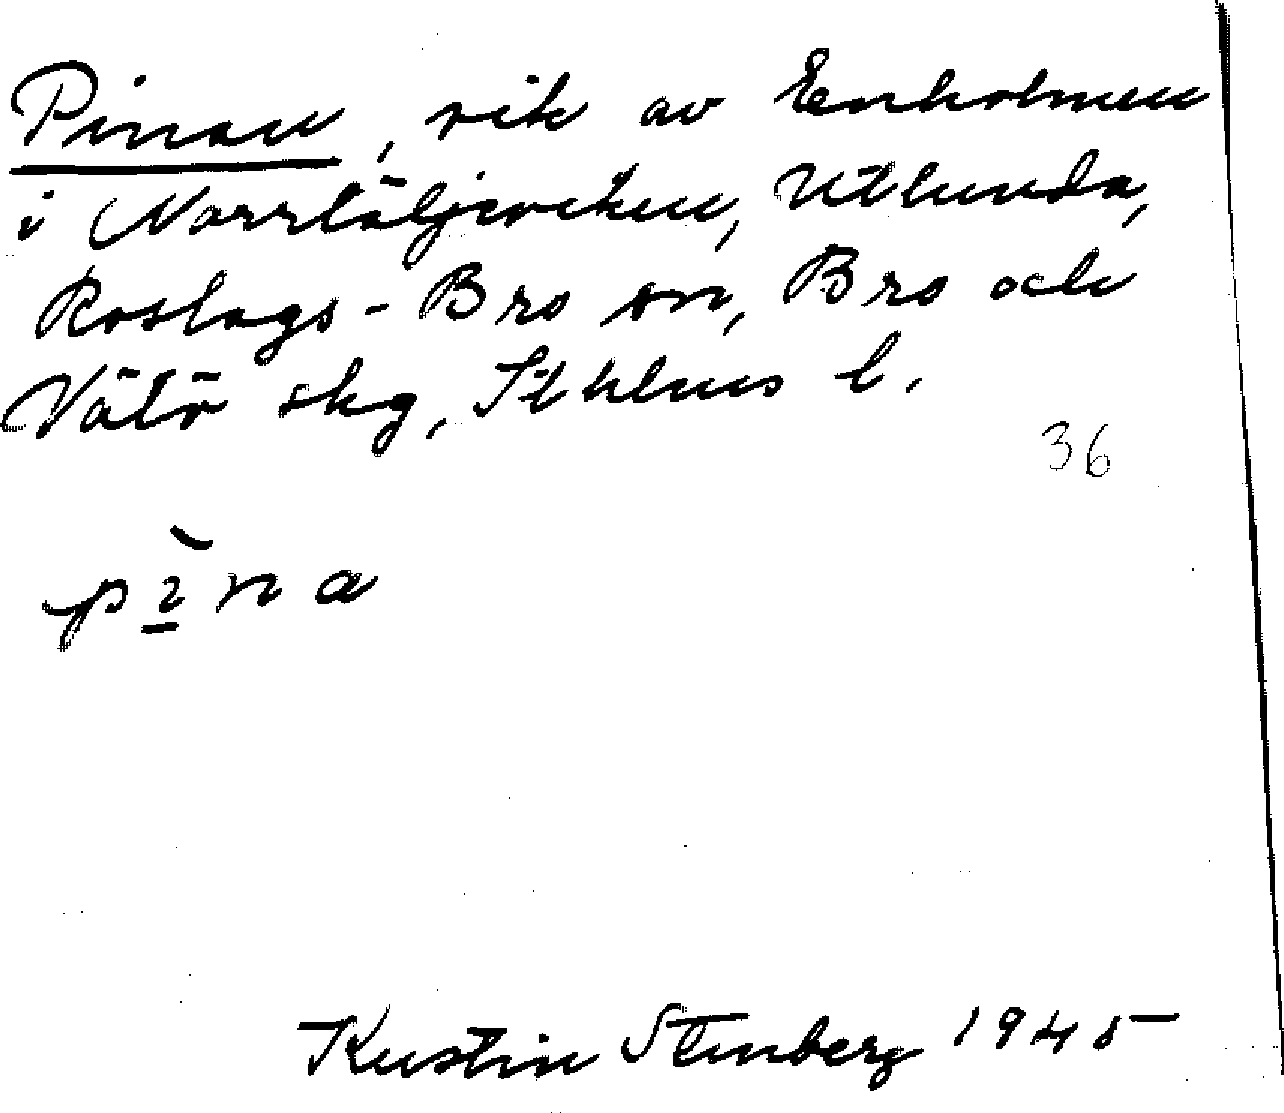 Pinan, vik av Enholmen
i Norrtäljeviken, Utlunda,
Roslags-Bro sn, Bro och
Vätö skg, Sthlms l.
36
pìna
Kerstin Stenberg 1945